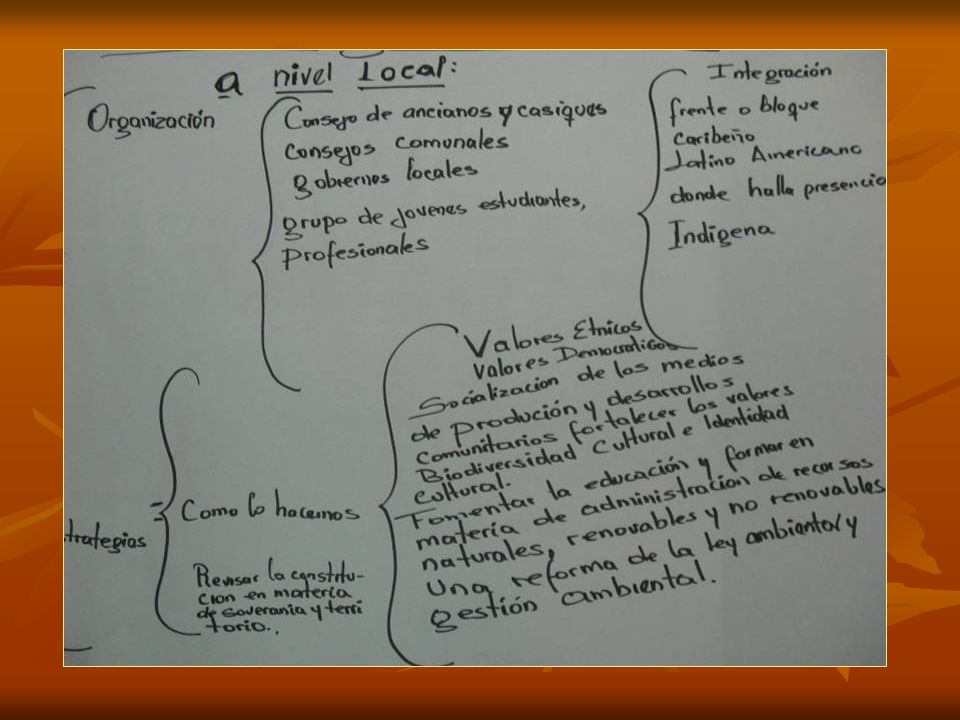 a nivel Local:
Organización
Consejo de ancianos y casiques
Consejos comunales
gobiernos locales
grupo de jovenes estudiantes,
profesionales
Integración
frente o bloque
caribeño
Latino Americano
donde halla presencia
Indigena
trategias
Como lo hacemos
Revisar la constitu-
cion en materia
de soverania y terri
torio..
Valores Etnicos
Valores Democraticos
Socialización de los medios
de produción y desarrollos
comunitarios fortalecer los valores
Biodiversidad Cultural e Identidad
cultural.
Fomentar la educación y formar en
materia de administracion de recursos
naturales, renovables y no renovables
Una reforma de la ley ambiental y
gestión ambiental.